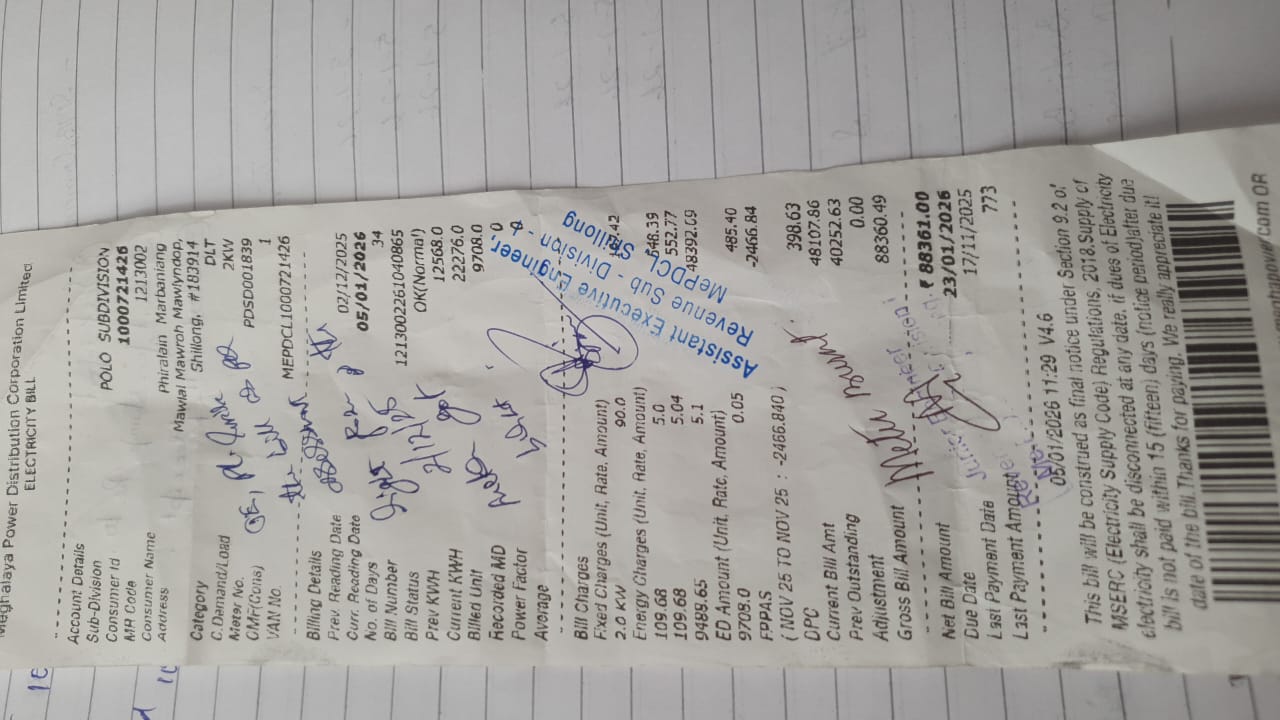 Meghalaya Power Distribution Corporation Limited
ELECTRICITY BILL
Account Details
Sub-Division POLO SUBDIVISION
Consumer Id 1000721426
MR Code 1213002
Consumer Name Phiralain Marbaniang
Address Mawlai Mawroh Mawlyndop,
Shillong, #183914
Category DLT
C.Demand/Load 2KW
Meter No. PDSD0018339
CMF(Cons) 1
VAN No. MEPDCL1000721426
Billing Details
Prev. Reading Date 02/12/2025
Curr. Reading Date 05/01/2026
No. of Days 34
Bill Number 12130022261040865
Bill Status OK(Normal)
Prev KWH 12568.0
Current KWH 22276.0
Billed Unit 9708.0
Recorded MD 0
Power Factor
Average
Bill Charges
Fixed Charges (Unit, Rate, Amount)
2.0 KW 90.0
Energy Charges (Unit, Rate, Amount)
109.68 5.0
109.68 5.04 552.77
9489.65 5.1 48392.09
ED Amount (Unit, Rate, Amount)
9708.0 0.05 485.40
FPPAS -2466.84
( NOV 25 TO NOV 25 : -2466.840 ;
DPC 398.63
Current Bill Amt 48107.86
Prev Outstanding 40252.63
Adjustment 0.00
Gross Bill Amount 88360.49
Net Bill Amount ₹ 88361.00
Due Date 23/01/2026
Last Payment Date 17/11/2025
Last Payment Amount 773
05/01/2026 11:29 V4.6
This bill will be construed as final notice under Section 9.2 of
MSERC (Electricity Supply Code) Regulations, 2018.Supply of
electricity shall be disconnected at any date, if dues of Electricity
bill is not paid within 15 (fifteen) days (notice period)after due
date of the bill.Thanks for paying. We really appreciate it!
Assistant Executive Engineer,
Revenue Sub - Division -
MePDCL Shillong
Meter Burnt